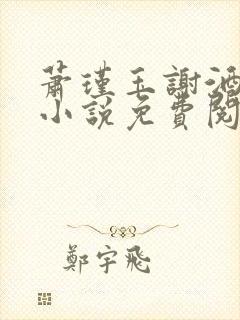 蕭瑾玉謝洒
小說免費閱
鄭宇飛